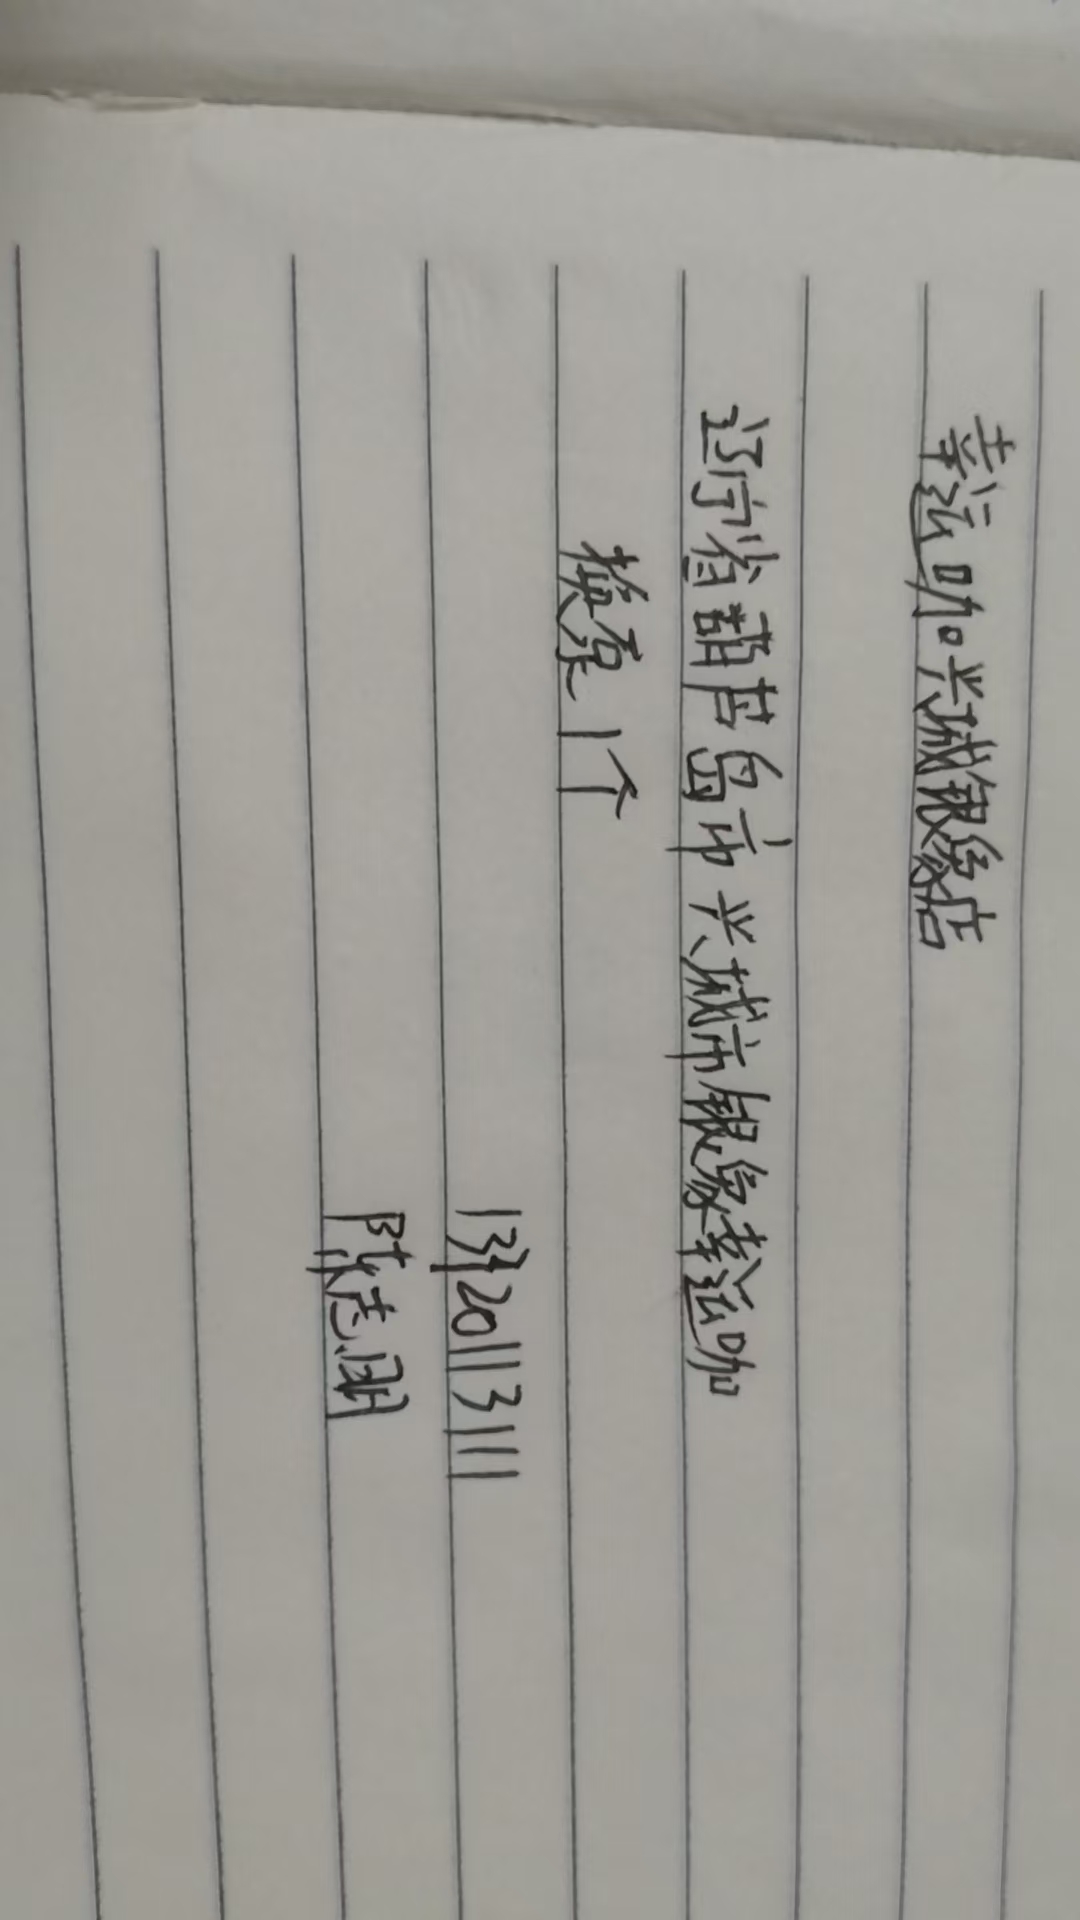 幸运咖兴城银象店
辽宁省葫芦岛市兴城市银象幸运咖
换泵1个
陈志明